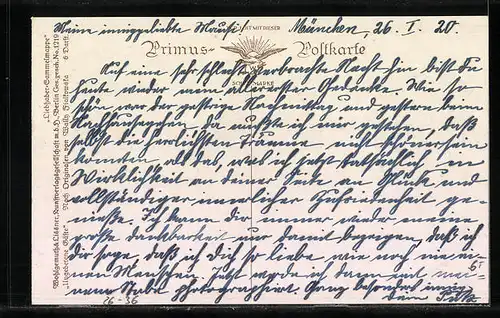 Meine inniggeliebte Mausi!
München, 26. I. 20.
NUR ECHT MIT DIESER
Primus-Postkarte
SCHUTZMARKE
Auf eine sehr schlecht verbrachte Nacht hin bist Du
heute wieder mein allererster Gedanke. Wie so
schön war der gestrige Nachmittag und gestern beim
Nachhausegehen da mußte ich mir gestehen, daß
selbst die herrlichsten Träume nicht schöner sein
konnten als das, was ich jetzt tatsächlich in
Wirklichkeit an deiner Seite an Glück und
vollständiger innerlicher Zufriedenheit ge-
nieße. Ich kann dir immer wieder meine
große Dankbarkeit nur damit bezeigen, daß ich
dir sage, daß ich dich so liebe wie noch nie ei-
nen Menschen. Jetzt werde ich dann mit mei-
nem Stabe photographiert. Ganz besonders innig
dein
26-36
"Liebhaber-Sammelmappe"
Wohlgemuth & Lissner, Kunstverlagsgesellschaft m.b.H., Berlin Ges. gesch. No. 1219
"Ungebetene Gäste" Nach Originalen von Wally Fialkowska 6 Dess.